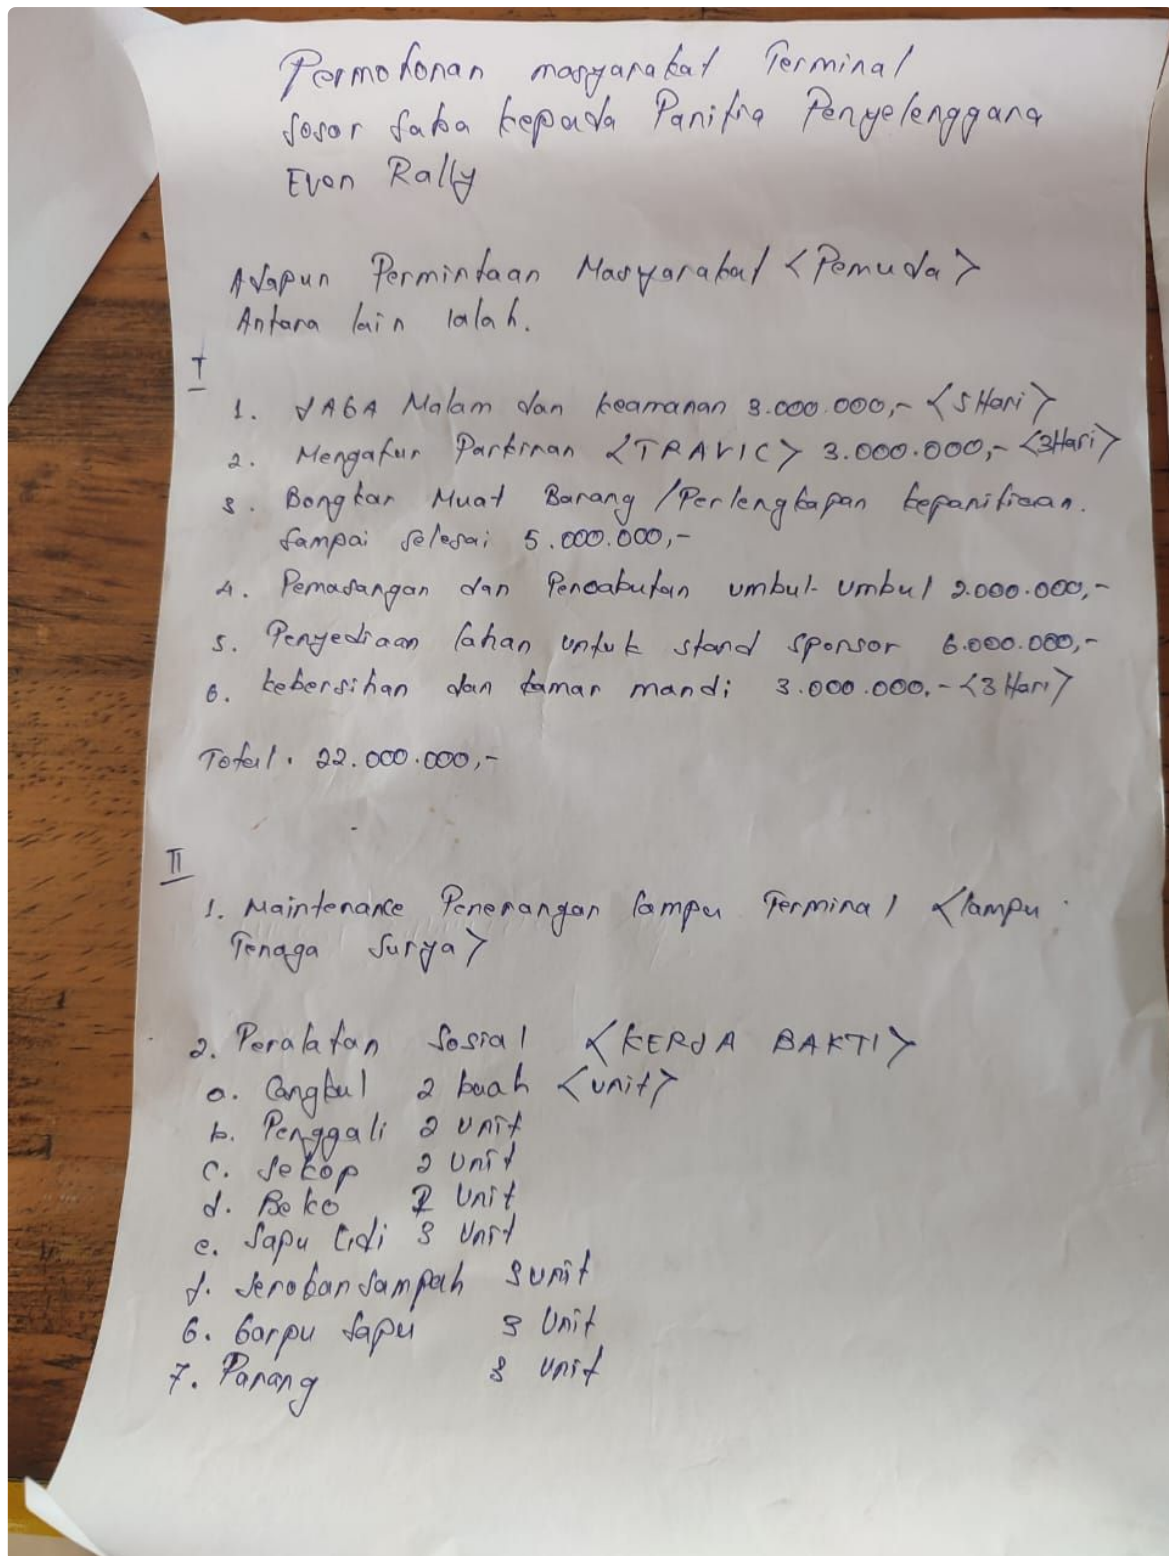 Permohonan masyarakat Terminal
Sosor Saba kepada Panitia Penyelenggara
Even Rally
Adapun Permintaan Masyarakat <Pemuda>
Antara lain ialah.
I
1. JAGA Malam dan keamanan 3.000.000,- <5 Hari>
2. Mengatur Parkiran <TRAVIC> 3.000.000,- <3Hari>
3. Bongkar Muat Barang /Perlengkapan kepanitiaan.
Sampai Selesai 5.000.000,-
4. Pemasangan dan Pencabutan umbul-umbul 2.000.000,-
5. Penyediaan lahan untuk stand sponsor 6.000.000,-
6. kebersihan dan kamar mandi 3.000.000.- <3 Hari>
Total . 22.000.000,-
II
1. Maintenance Penerangan lampu Terminal <lampu
Tenaga Surya>
2. Peralatan Sosial <KERJA BAKTI>
a. Cangkul 2 buah <unit>
b. Penggali 2 unit
c. Sekop 2 Unit
d. Beko Unit
e. Sapu Lidi 3 Unit
f. Serokan Sampah 3 unit
G. Garpu Sapu 3 Unit
7. Parang 3 unit